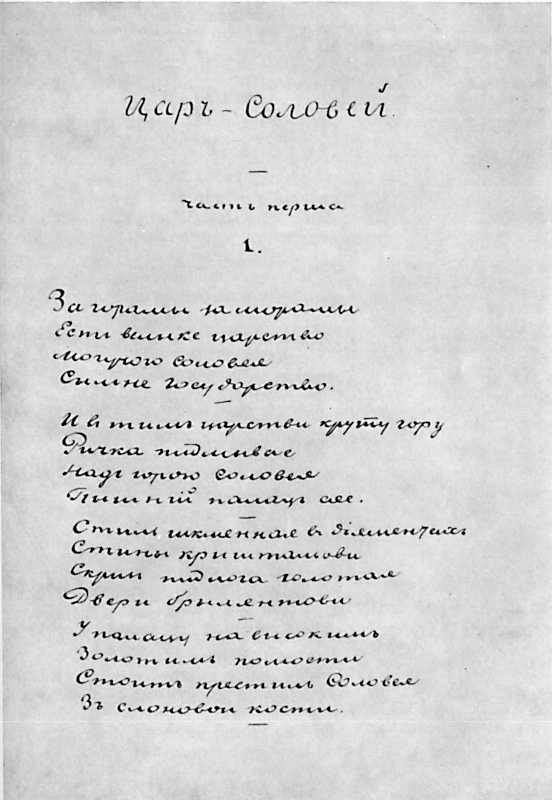 Царъ - Соловей.
часть перша
1.
За горамы за морамы
Есть велике царство
Могучою Соловея
Сильне государство.
И въ тимъ царстви круту гору
Ричка пидмывае
Надъ горою Соловея
Пышній палацъ сяе.
въ діяментахъ
Стины кришталиови
пидлога золотая
Двери брылянтови
У палацу на високимъ
Золотимъ помости
Стоитъ престилъ Соловея
Зъ слоновой кости.